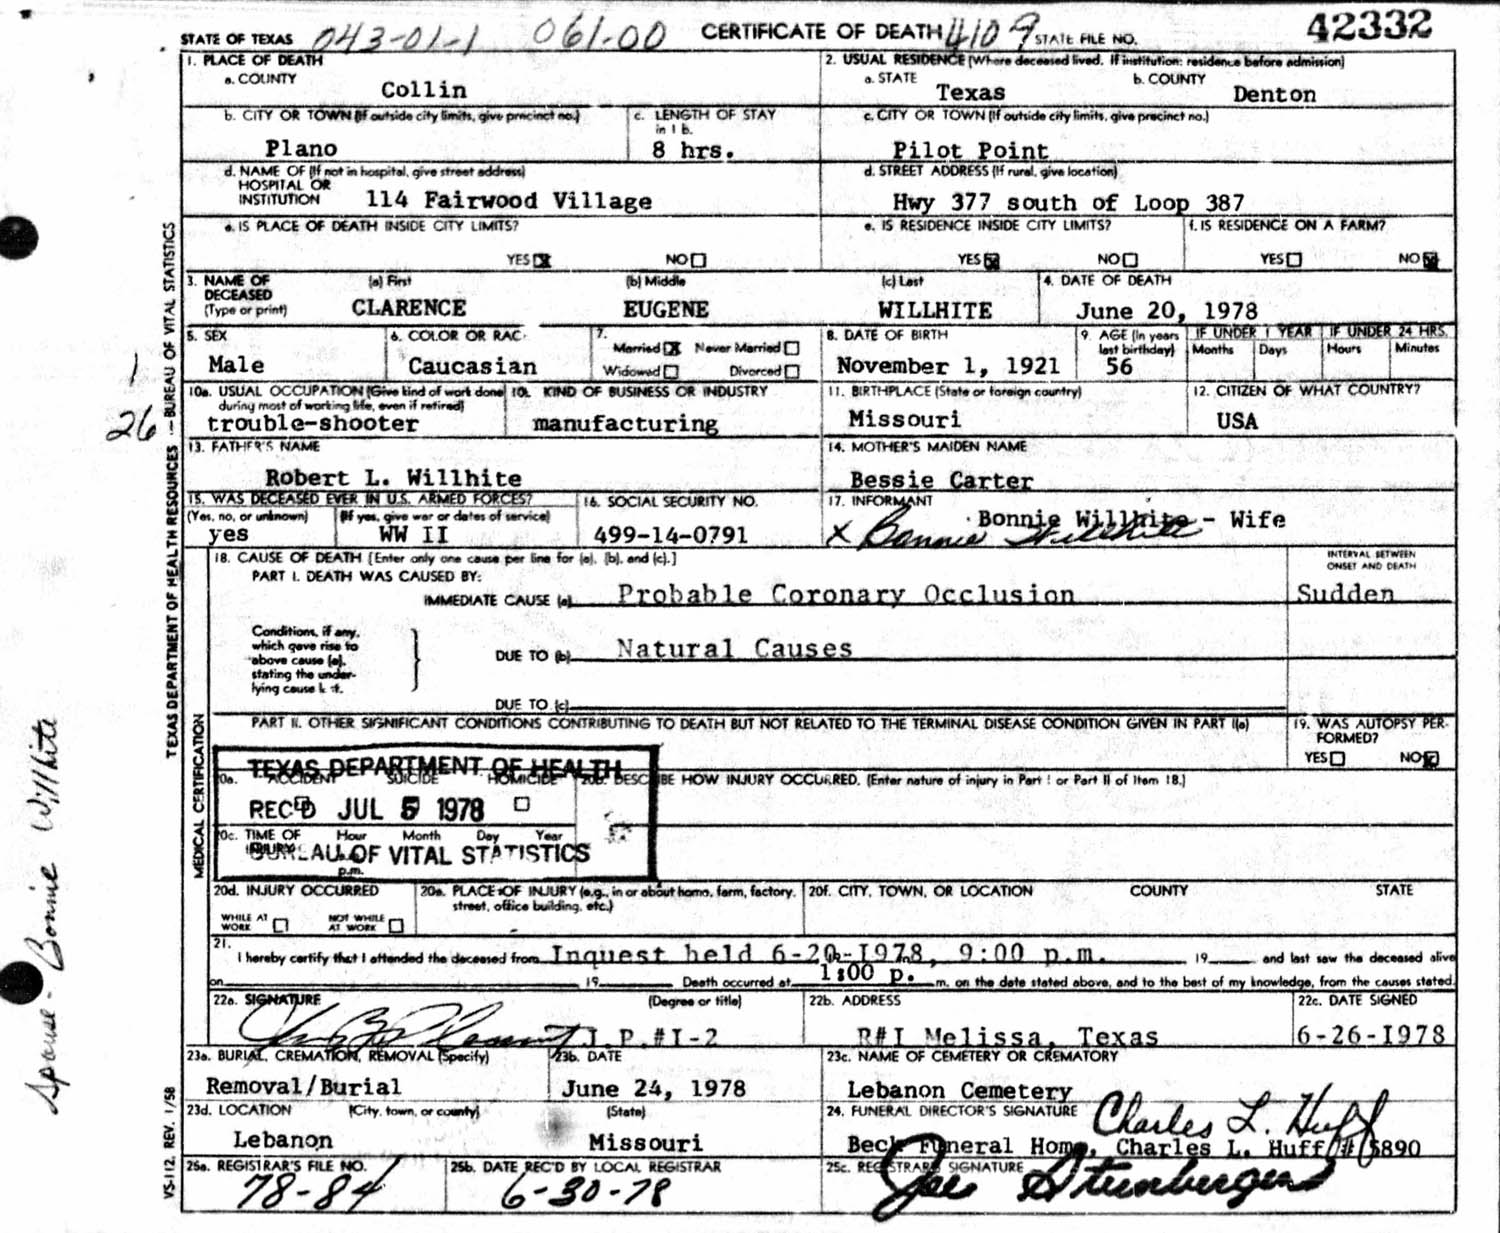 STATE OF TEXAS 043-01-1 061-00 CERTIFICATE OF DEATH 4109 STATE FILE NO. 42332
1. PLACE OF DEATH
a. COUNTY
Collin
2. USUAL RESIDENCE (Where deceased lived. If institution: residence before admission)
a. STATE
Texas
b. COUNTY
Denton
b. CITY OR TOWN (If outside city limits, give precinct no.)
Plano
c. LENGTH OF STAY
in 1 b.
8 hrs.
c. CITY OR TOWN (If outside city limits, give precinct no.)
Pilot Point
d. NAME OF (If not in hospital, give street address)
HOSPITAL OR
INSTITUTION 114 Fairwood Village
d. STREET ADDRESS (If rural, give location)
Hwy 377 south of Loop 387
e. IS PLACE OF DEATH INSIDE CITY LIMITS?
YES NO
e. IS RESIDENCE INSIDE CITY LIMITS?
YES NO
f. IS RESIDENCE ON A FARM?
YES NO
3. NAME OF
DECEASED
(Type or print)
(a) First
CLARENCE
(b) Middle
EUGENE
(c) Last
WILLHITE
4. DATE OF DEATH
June 20, 1978
5. SEX
Male
6. COLOR OR RAC
Caucasian
7.
Married Never Married
Widowed Divorced
8. DATE OF BIRTH
November 1, 1921
9. AGE (In years
last birthday)
56
IF UNDER 1 YEAR IF UNDER 24 HRS.
Months Days Hours Minutes
10a. USUAL OCCUPATION (Give kind of work done
during most of working life, even if retired)
trouble-shooter
10. KIND OF BUSINESS OR INDUSTRY
manufacturing
11. BIRTHPLACE (State or foreign country)
Missouri
12. CITIZEN OF WHAT COUNTRY?
USA
13. FATHER'S NAME
Robert L. Willhite
14. MOTHER'S MAIDEN NAME
Bessie Carter
15. WAS DECEASED EVER IN U.S. ARMED FORCES?
(Yes, no, or unknown) (If yes, give war or dates of service)
yes WW II
16. SOCIAL SECURITY NO.
499-14-0791
17. INFORMANT
Bonnie Willhite - Wife
X Bonnie Willhite
18. CAUSE OF DEATH [Enter only one cause per line for (a), (b), and (c).]
INTERVAL BETWEEN
ONSET AND DEATH
PART I. DEATH WAS CAUSED BY:
IMMEDIATE CAUSE (a) Probable Coronary Occlusion Sudden
Conditions, if any,
which gave rise to
above cause (a),
stating the under-
lying cause
DUE TO (b) Natural Causes
DUE TO (c)
PART II. OTHER SIGNIFICANT CONDITIONS CONTRIBUTING TO DEATH BUT NOT RELATED TO THE TERMINAL DISEASE CONDITION GIVEN IN PART I(a)
19. WAS AUTOPSY PER-
FORMED?
YES NO
TEXAS DEPARTMENT OF HEALTH
20a. ACCIDENT SUICIDE HOMICIDE
20b. DESCRIBE HOW INJURY OCCURRED. (Enter nature of injury in Part I or Part II of Item 18.)
REC'D JUL 5 1978
20c. TIME OF Hour Month Day Year
INJURY
BUREAU OF VITAL STATISTICS
p.m.
20d. INJURY OCCURRED
WHILE AT WORK NOT WHILE AT WORK
20e. PLACE OF INJURY (e.g., in or about home, farm, factory,
street, office building, etc.)
20f. CITY, TOWN, OR LOCATION COUNTY STATE
21.
I hereby certify that I attended the deceased from Inquest held 6-20-1978, 9:00 p.m. 19 and last saw the deceased alive
on 19 Death occurred at 1:00 p. m. on the date stated above, and to the best of my knowledge, from the causes stated.
22a. SIGNATURE (Degree or title)
J.P.#I-2
22b. ADDRESS
R#I Melissa, Texas
22c. DATE SIGNED
6-26-1978
23a. BURIAL, CREMATION, REMOVAL (Specify)
Removal/Burial
23b. DATE
June 24, 1978
23c. NAME OF CEMETERY OR CREMATORY
Lebanon Cemetery
23d. LOCATION (City, town, or county) (State)
Lebanon Missouri
24. FUNERAL DIRECTOR'S SIGNATURE Charles L. Huff
Beck Funeral Home, Charles L. Huff # 5890
25a. REGISTRAR'S FILE NO.
78-84
25b. DATE REC'D BY LOCAL REGISTRAR
6-30-78
25c. REGISTRARS SIGNATURE
TEXAS DEPARTMENT OF HEALTH RESOURCES — BUREAU OF VITAL STATISTICS
MEDICAL CERTIFICATION
VS-112, REV. 1/58
1
26
Spouse - Bonnie Willhite